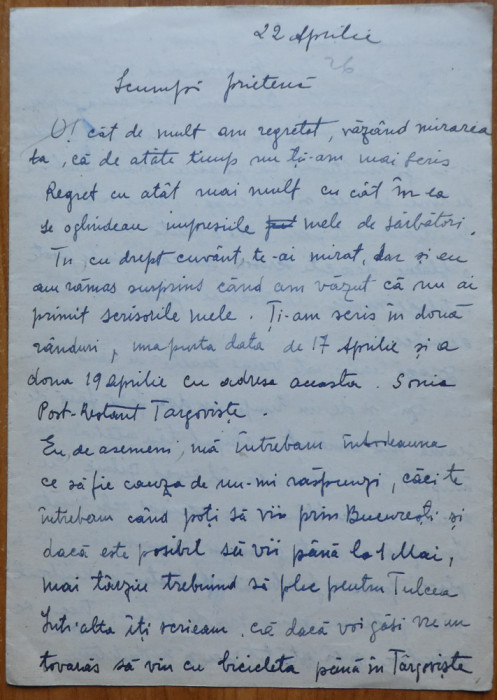 22 Aprilie
26
Scumpă prietenă
O! cât de mult am regretat, văzând mirarea
ta, că de atâte timp nu ți-am mai scris
Regret cu atât mai mult cu cât în ea
se oglindeau impresiile mele de sărbători.
Tu, cu drept cuvânt, te-ai mirat, dar și eu
am rămas surprins când am văzut că nu ai
primit scrisorile mele. Ți-am scris în două
rânduri, una purta data de 17 Aprilie și a
doua 19 aprilie cu adresa aceasta. Sonia
Post-Restant Targoviște.
Eu, de asemeni, mă întrebam întodeauna
ce să fie cauza de nu-mi răspunzi, căci te
întrebam când poți să vii prin București și
dacă este posibil să vii până la 1 Mai,
mai târziu trebuind să plec pentru Tulcea
Într'alta îți scrieam, că dacă voi găsi vre-un
tovarăs să vin cu bicicleta până în Târgoviște